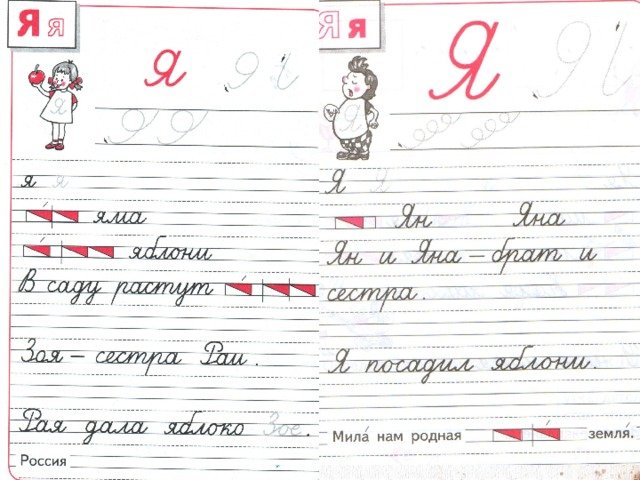 Я я
Я Я
Я
я я
яма
яблони
В саду растут
Зоя – сестра Раи.
Рая дала яблоко Зое.
Россия
Я я
Я Я
Я
Я Я
Ян Яна
Ян и Яна – брат и
сестра.
Я посадил яблони.
Мила́ нам родная земля́.